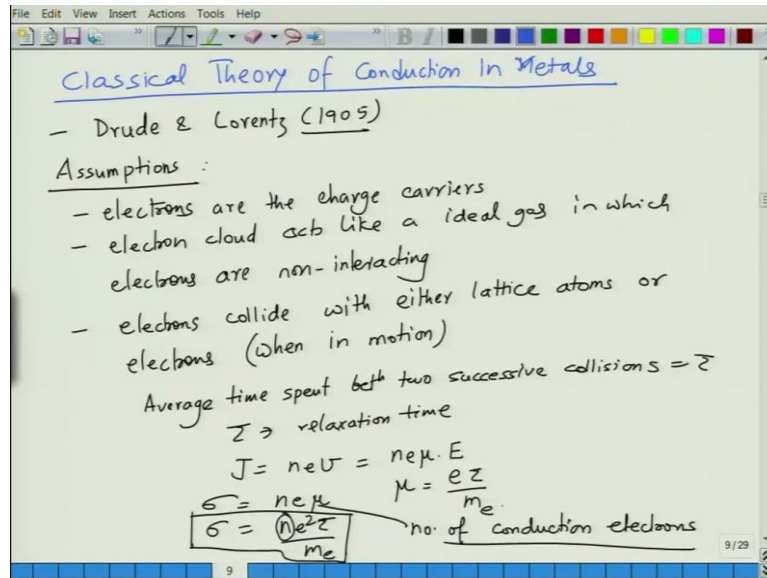 File Edit View Insert Actions Tools Help
Classical Theory of Conduction In Metals
– Drude & Lorentz (1905)
Assumptions :
– electrons are the charge carriers
– electron cloud acts like a ideal gas in which
electrons are non-interacting
– electrons collide with either lattice atoms or
electrons (when in motion)
Average time spent betn two successive collisions = τ
τ → relaxation time
J = nev = neμ. E
σ = neμ
μ = eτ/me.
σ = ne²τ/me
no. of conduction electrons
9/29
9